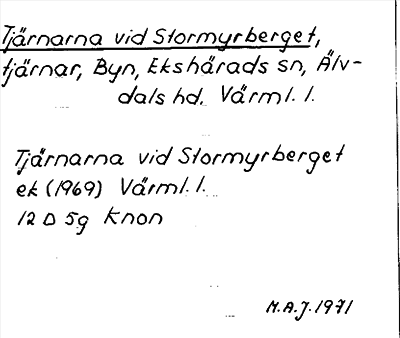 Tjärnarna vid Stormyrberget,
tjärnar, Byn, Ekshärads sn, Älv-
dals hd. Värml. l.
Tjärnarna vid Stormyrberget
ek (1969) Värml. l.
12 D 5g Knon
M.A.J. 1971